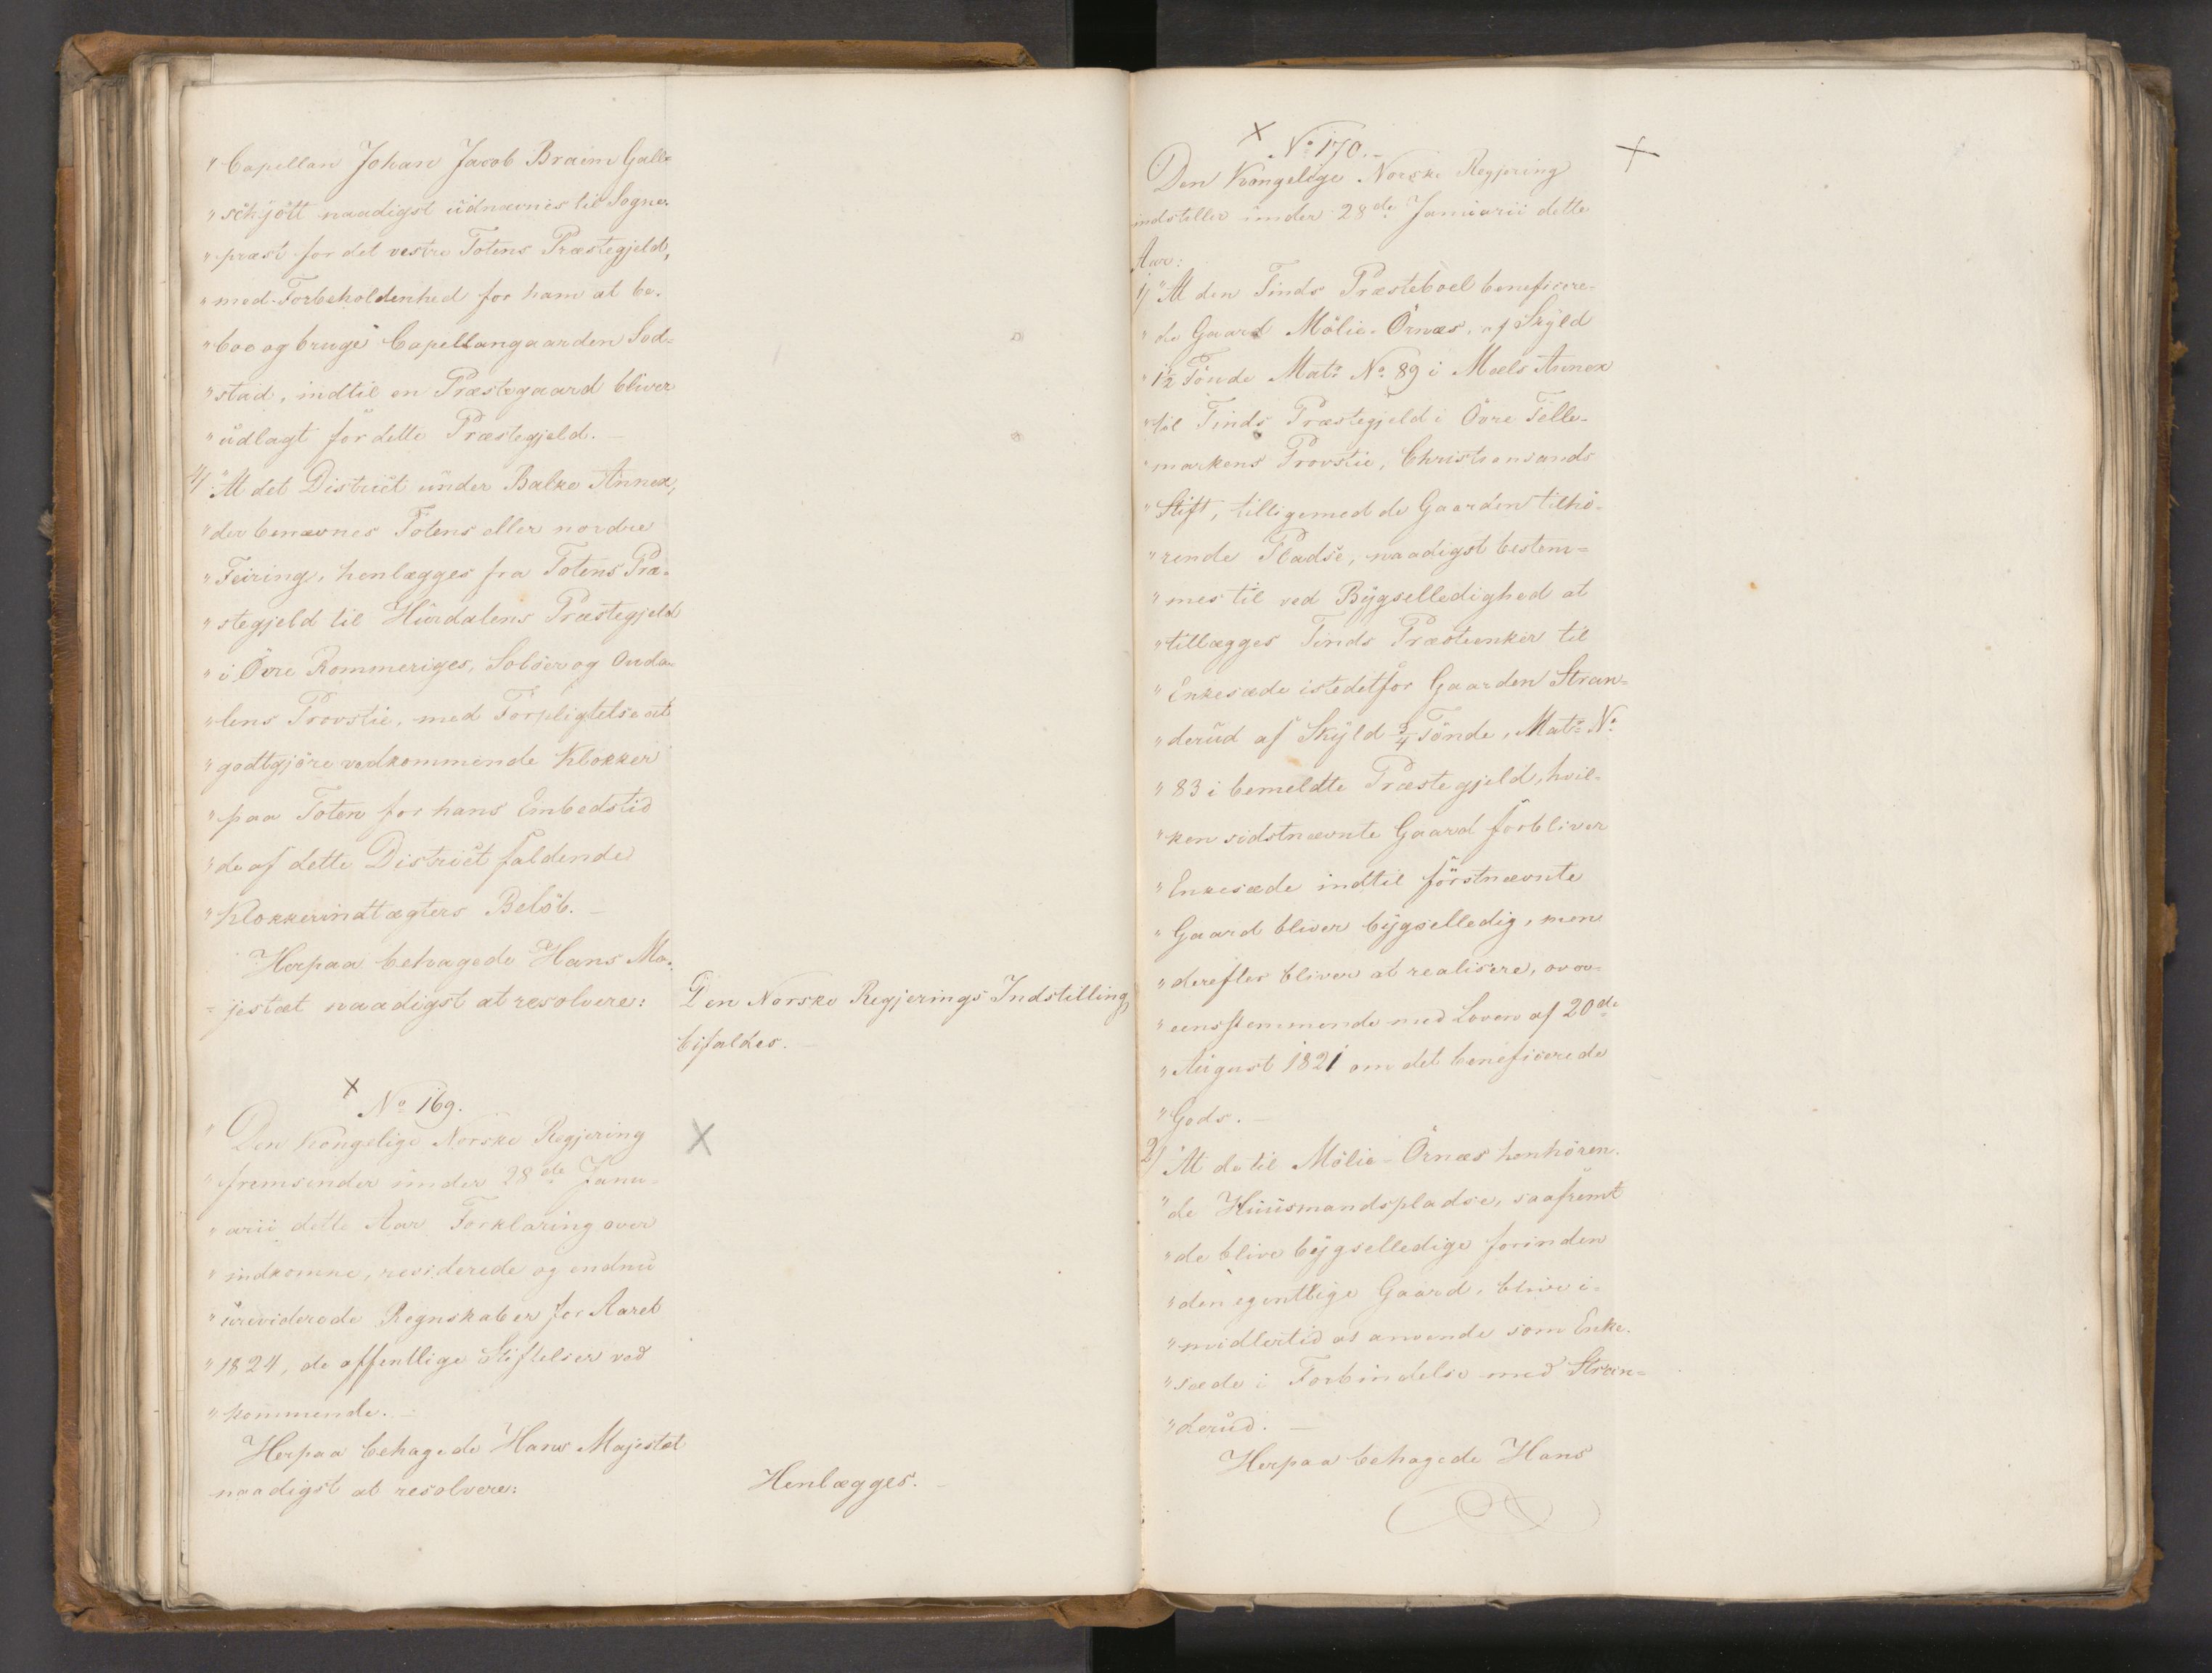 " Capellan Johan Jacob Braim Galle
" schjött naadigst üdnævnes til Sogne-
" præst for det vestre Totens Præstegjeld,
" med Forbeholdenhed for ham at be-
" boe og bruge Capellangaarden Sod=
" stad, indtil en Præstegaard bliver
" üdlagt for dette Præstegjeld. —
4/ " At det District ünder Balke Annex,
" der benævnes Totens eller nordre
" Feiring, henlægges fra Totens Præ-
" stegjeld til Hürdalens Præstegjeld
" i Övre Rommeriges, Solöer og Ouda-
" lens Provstie, med Forpligtelse at
" godtgjöre vedkommende Klokker
" paa Toten for hans Embedstid
" de af dette District faldende
" Klokkerindtægters Belöb. —
Herpaa behagede Hans Ma-
= jestæt naadigst at resolvere:
Den Norske Regjerings Indstilling
bifaldes. —
X
No 169.
" Den Kongelige Norske Regjering
X
" fremsender ünder 28de Janu-
" arii dette Aar Forklaring over
" indkomne, reviderede og endnü
" üreviderede Regnskaber for Aaret
" 1824, de offentlige Stiftelser ved
" kommende. —
Herpaa behagede Hans Majestæt
naadigst at resolvere:
Henlægges. —
X
No 170. —
X
Den Kongelige Norske Regjering
indstiller ünder 28de Janüarii dette
Aar:
1/ " At den Tinds Præsteboel beneficere-
" de Gaard Mölie-Örnæs, af Skÿld
" 1½ Tönde Matr No 89 i Mæls Annex
" til Tinds Præstegjeld i Övre Telle-
" markens Provstie, Christiansands
" Stift, tilligemed de Gaarden tilhö-
" rende Pladse, naadigst bestem=
" mes til ved Bÿgselledighed at
" tillægges Tinds Præsteenker til
" Enkesæde istedetfor Gaarden Stran=
" derüd af Skÿld ¾ Tönde, Matr No
" 83 i bemeldte Præstegjeld, hvil-
" ken sidstnævnte Gaard forbliver
" Enkesæde indtil förstnævnte
" Gaard bliver bÿgselledig, men
" derefter bliver at realisere, over-
" eensstemmende med Loven af 20de
" August 1821 om det beneficerede
" Gods. —
2/ " At de til Mölie-Örnæs henhören-
" de Hüusmandspladse, saafremt
" de blive bÿgselledige forinden
" den egentlige Gaard, blive i-
" midlertid at anvende som Enke-
" sæde i Forbindelse med Stran=
" derüd. —
Herpaa behagede Hans